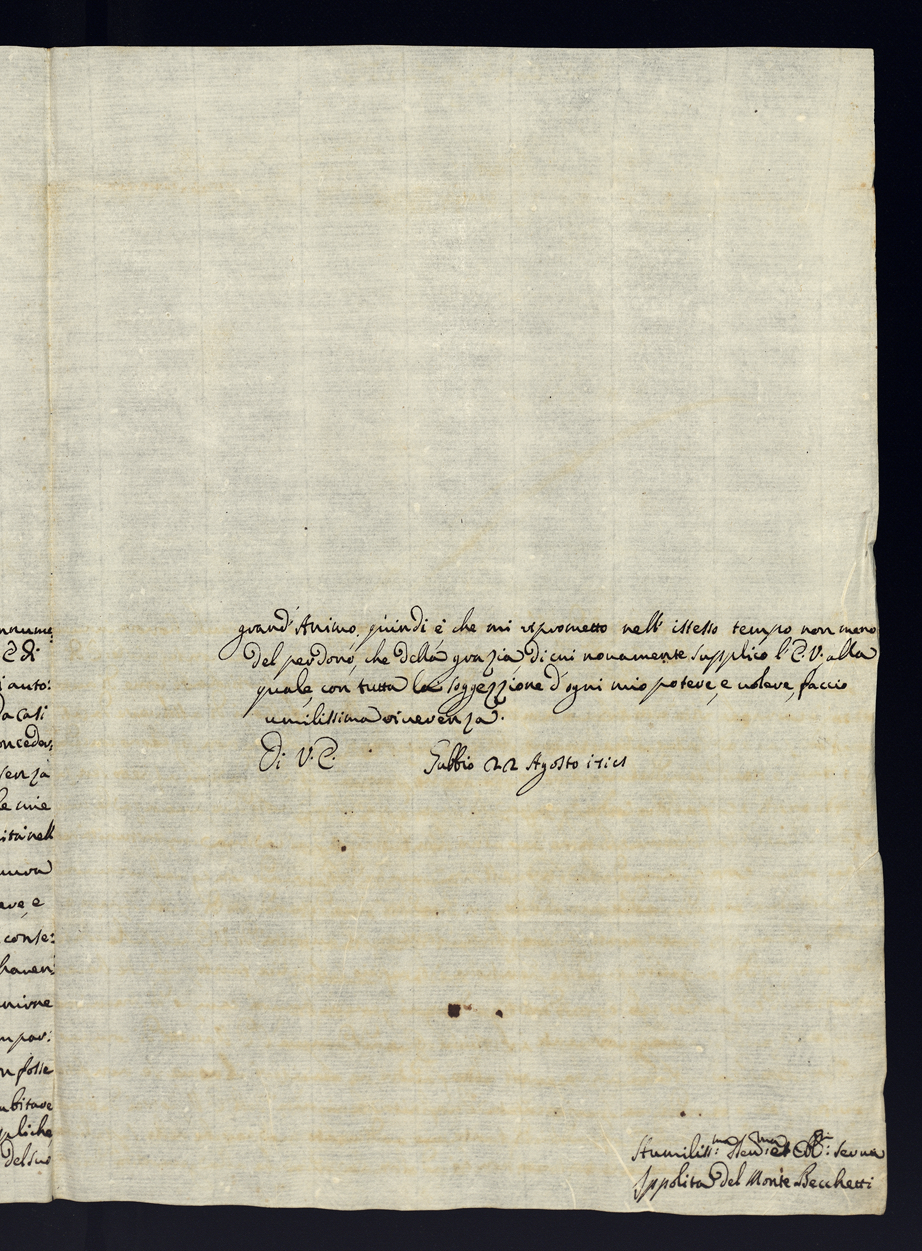 nnume:
E di
i auto:
da casi
onceder:
senza
le mie
ità nell
nuova
ave, e
conse:
haver
nione
n par:
n fosse
ubitare
ppliche
del suo
grand' Animo, quindi è che mi riprometto nell' istesso tempo non meno
del perdono, che della grazia di cui novamente supplico l' E. V. alla
quale, con tutta la soggezzione d' ogni mio potere, e volere, faccio
umilissima riverenza.
Di V. E. Gubbio 22 Agosto
Humiliss:ma Dev:ma et Obb: serva
Ippolita del Monte Becchetti